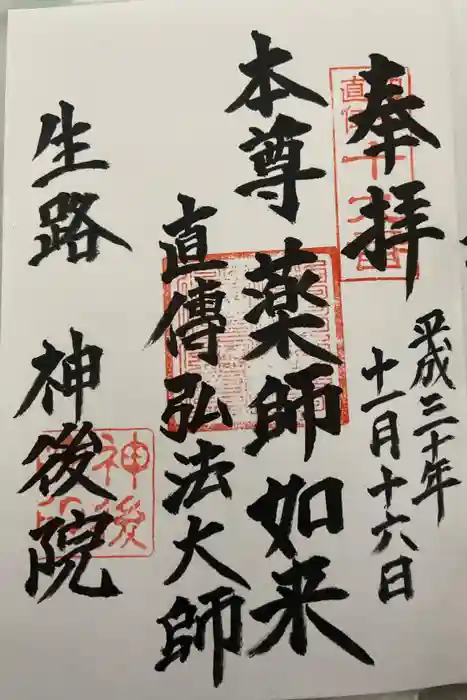 奉拝
平成三十年
十一月十六日
本尊 薬師如来
直傳弘法大師
生路 神後院